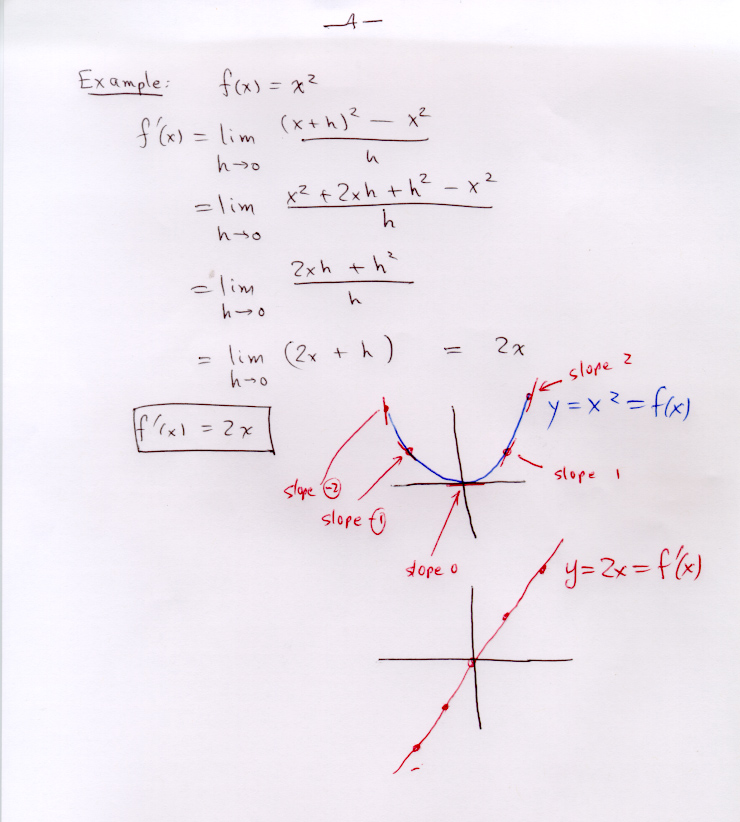 —4—
Example: f(x) = x²
f'(x) = lim h→0 (x+h)² — x² / h
= lim h→0 x² + 2xh + h² - x² / h
= lim h→0 2xh + h² / h
= lim h→0 (2x + h) = 2x
slope 2
y = x² = f(x)
f'(x) = 2x
slope 1
slope -2
slope -1
slope 0
y = 2x = f'(x)